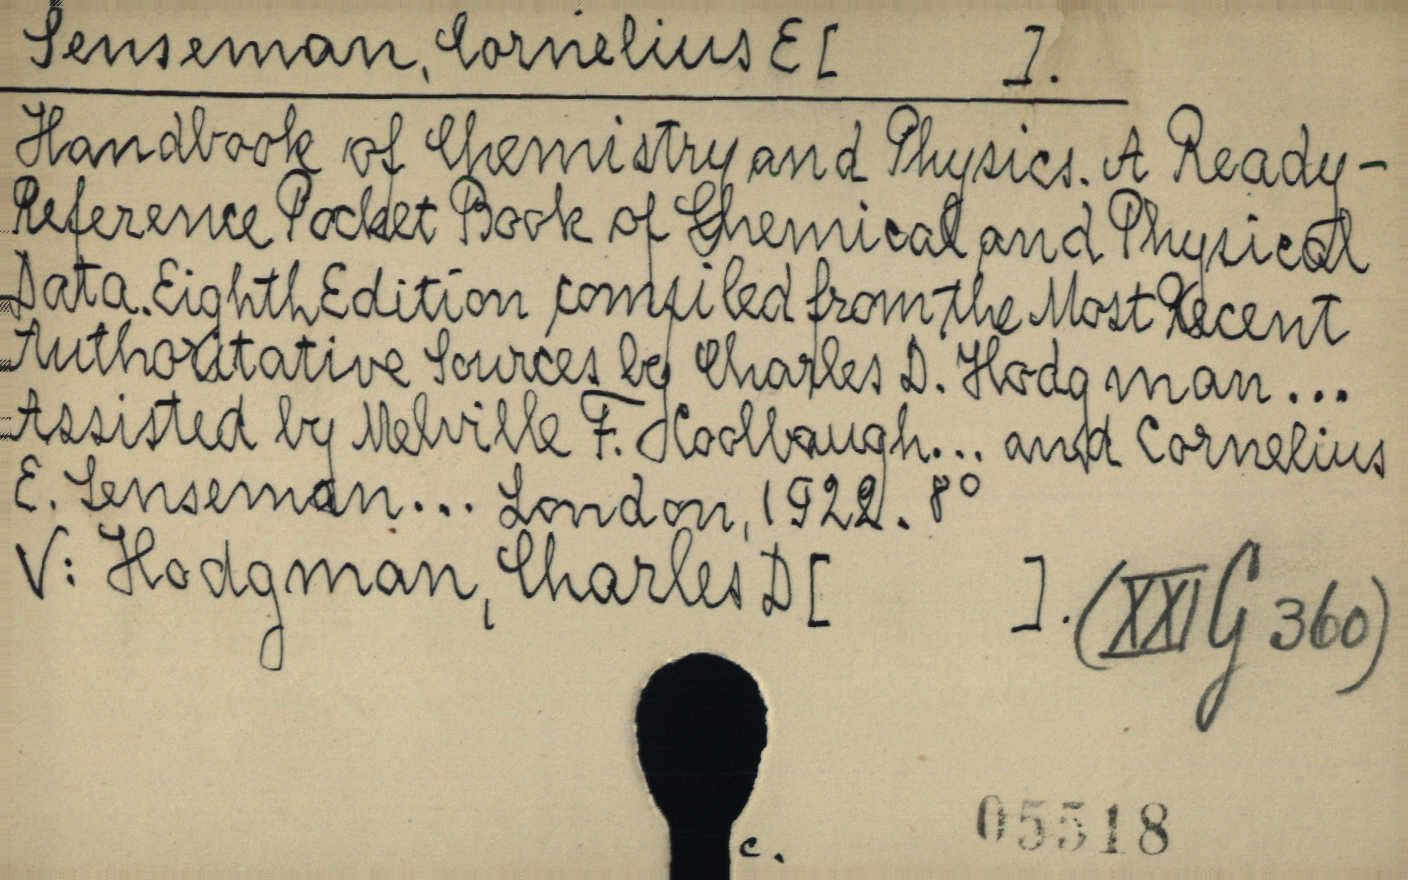 Senseman, Cornelius E [ ].
Handbook of Chemistry and Physics. A Ready-
Reference Pocket Book of Chemical and Physical
Data. Eighth Edition compiled from the Most Recent
Authoritative Sources by Charles D. Hodgman...
Assisted by Melville F. Coolbaugh... and Cornelius
E. Senseman... London, 1922. 8°
V: Hodgman, Charles D [ ].
(XXI G 360)
05518
c.